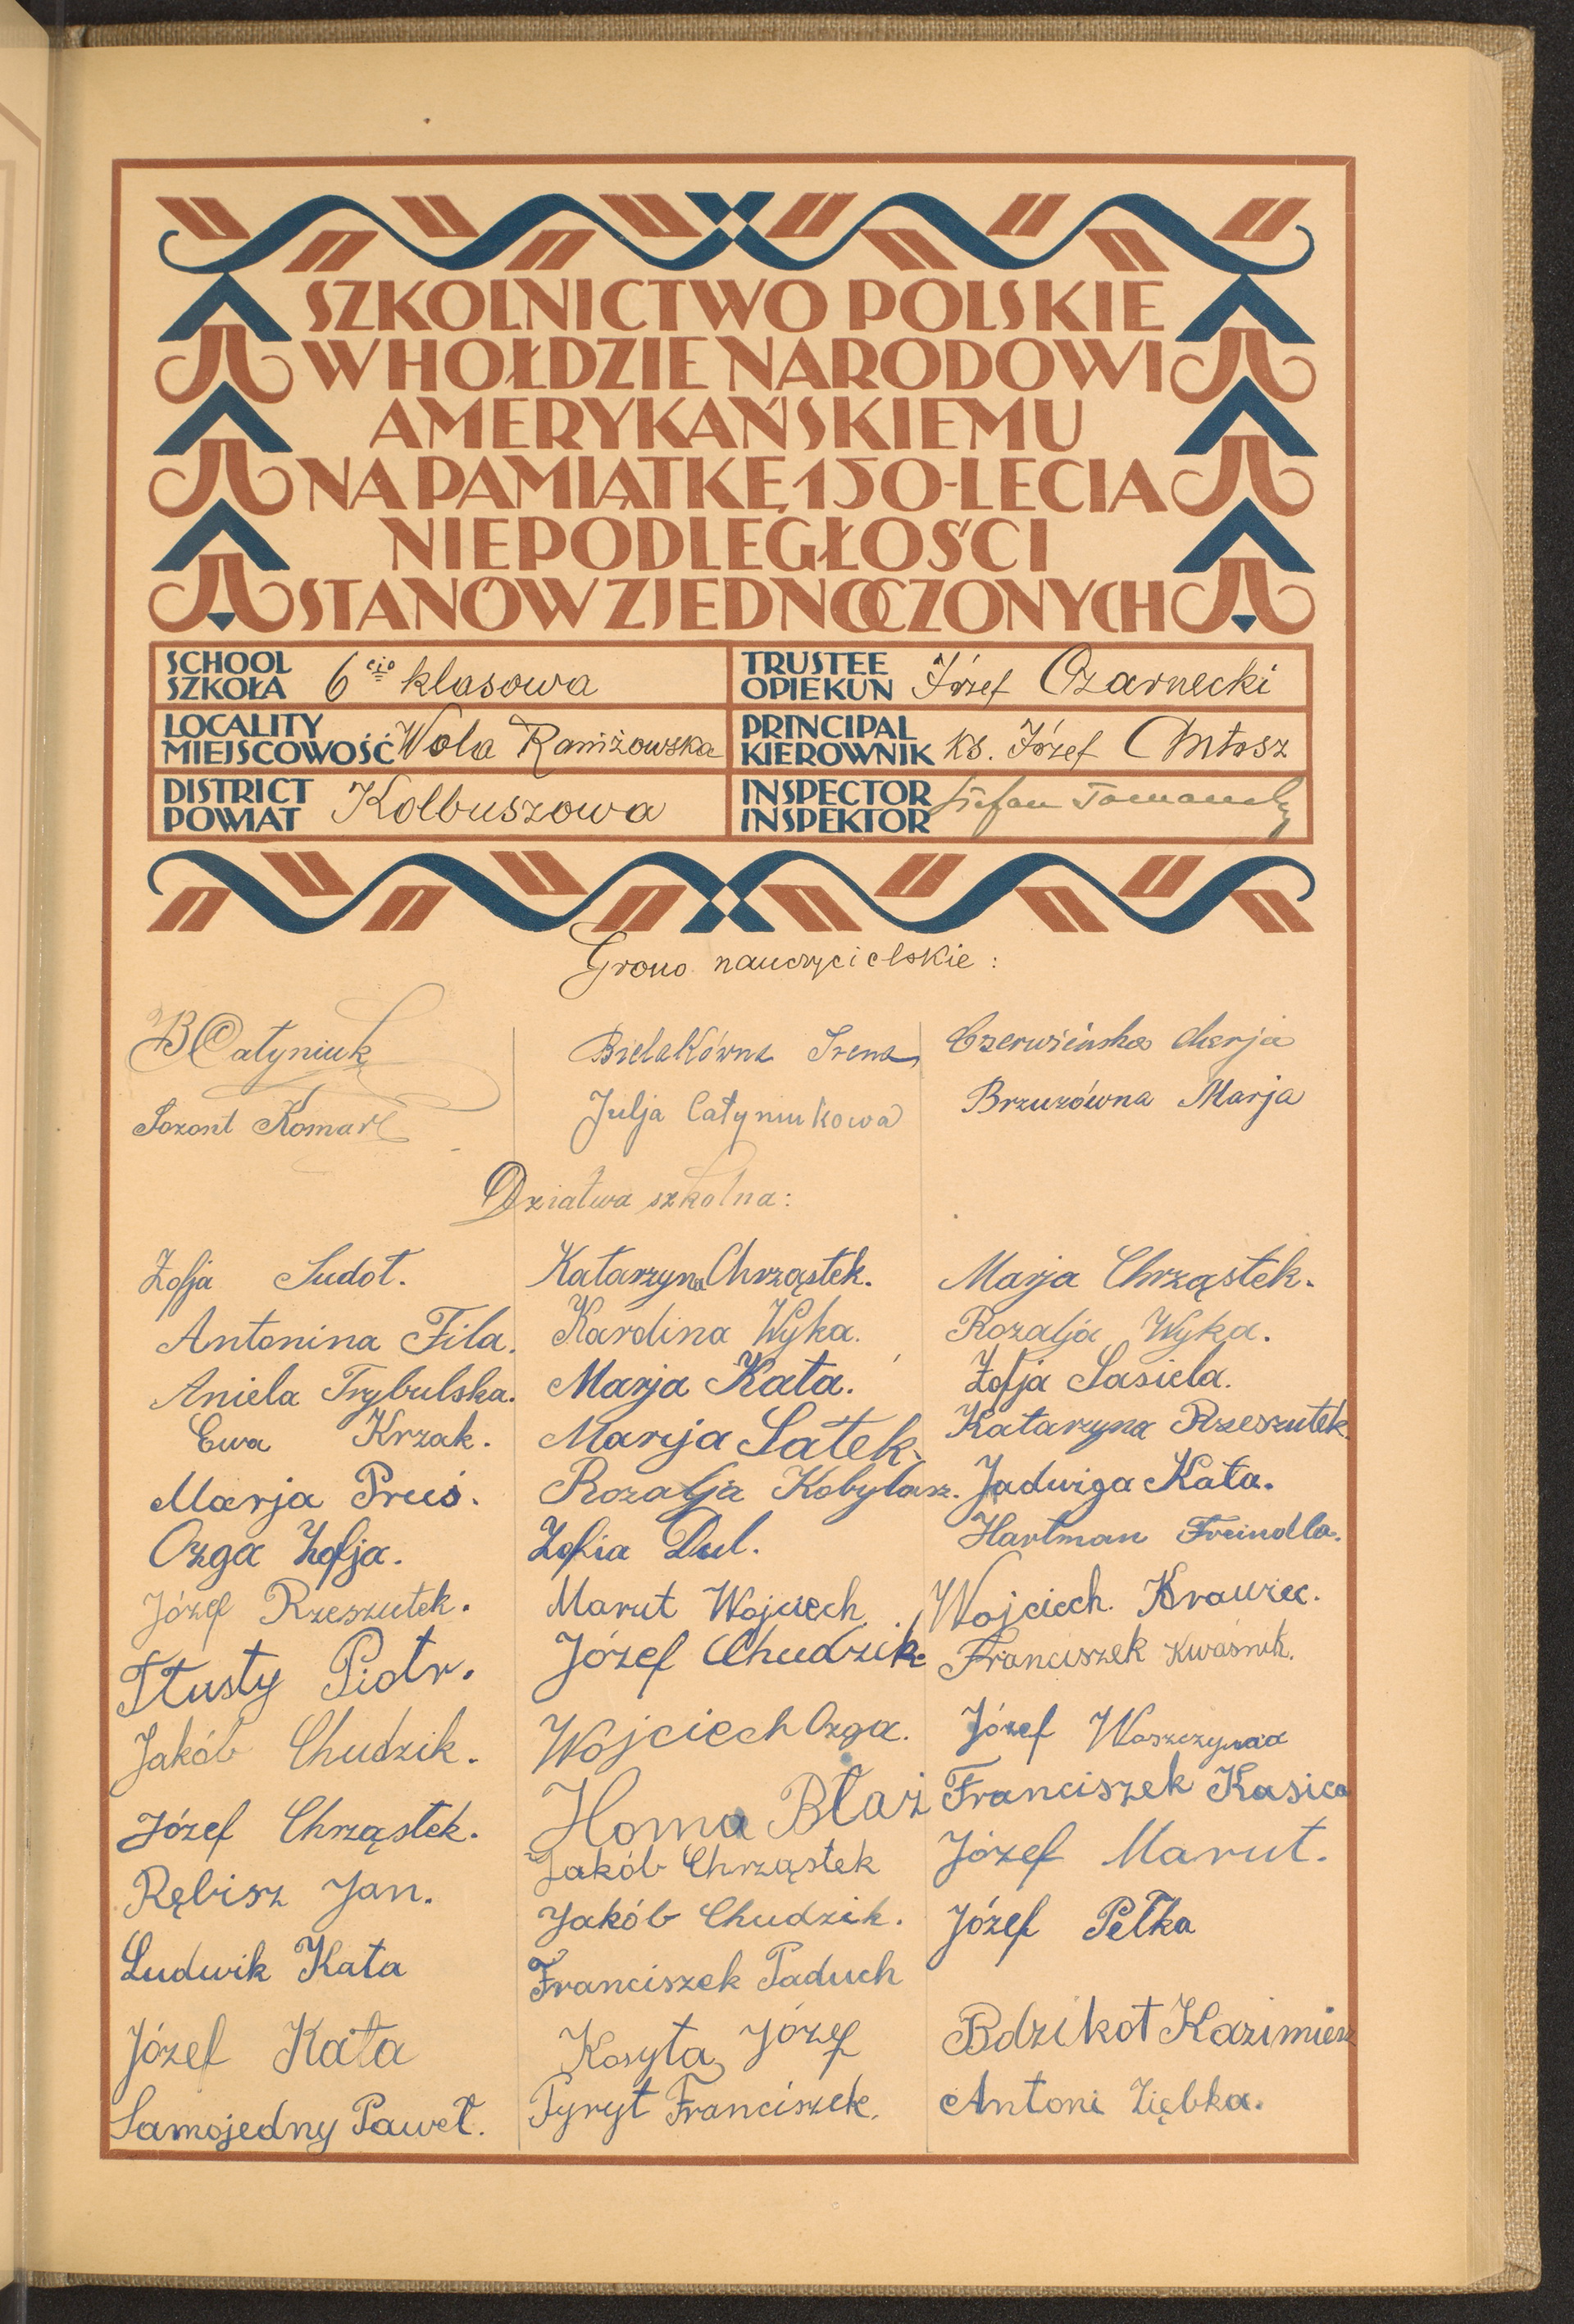 SZKOLNICTWO POLSKIE
W HOŁDZIE NARODOWI
AMERYKAŃSKIEMU
NA PAMIĄTKĘ 150-LECIA
NIEPODLEGŁOŚCI
STANÓW ZJEDNOCZONYCH
SCHOOL
SZKOŁA 6 cio klasowa
TRUSTEE
OPIEKUN Józef Czarnecki
LOCALITY
MIEJSCOWOŚĆ Wola Raniżowska
PRINCIPAL
KIEROWNIK Ks. Józef
DISTRICT
POWIAT Kolbuszowa
INSPECTOR
INSPEKTOR Stefan
Grono nauczycielskie:
B Catyniuk
Sozont Komar
Bielakówna Irena
Julja Catyniukowa
Czerwińska Marja
Brzuzówna Marja
Dziatwa szkolna:
Zofja Sudoł.
Antonina Fila.
Aniela Trybulska.
Ewa Krzak.
Marja Pruś.
Ozga Zofja.
Józef Rzeszutek.
Tłusty Piotr.
Jakób Chudzik.
Józef Chrząstek.
Rębisz Jan.
Ludwik Kata
Józef Kata
Samojedny Paweł.
Katarzyna Chrząstek.
Karolina Wyka.
Marja Kata.
Marja Satek.
Rozalja Kobylarz.
Zofia Dul.
Marut Wojciech
Józef Chudzik.
Wojciech Ozga.
Homa Błaż
Jakób Chrząstek
Jakób Chudzik.
Franciszek Paduch
Koryta Józef
Pyryt Franciszek.
Marja Chrząstek.
Rozalja Wyka.
Zofja Sasiela.
Katarzyna Rzeszutek.
Jadwiga Kata.
Hartman Freindla.
Wojciech Krawiec.
Franciszek Kwaśnik.
Józef Waszczyna
Franciszek Kasica
Józef Marut.
Józef Pełka
Bdzikot Kazimierz
Antoni Ziębka.